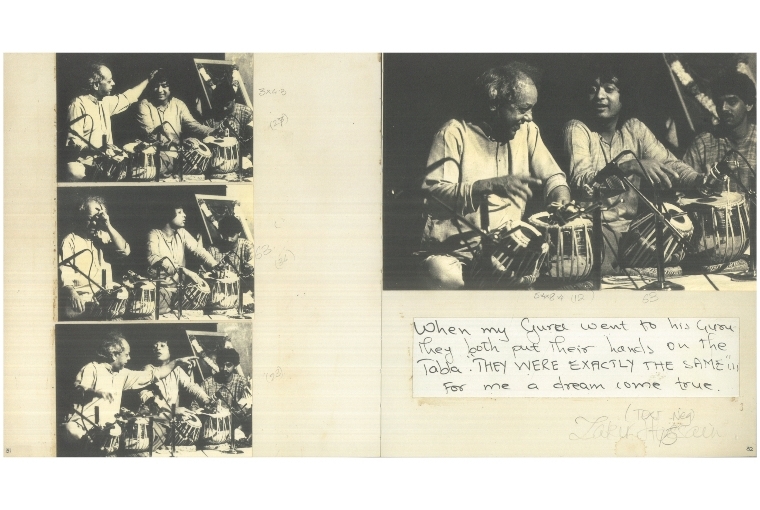 When my Guru went to his Guru
they both put their hands on the
Tabla. "THEY WERE EXACTLY THE SAME"!!!
For me a dream come true.
(Text Neg)
Zakir Hussain
51
52